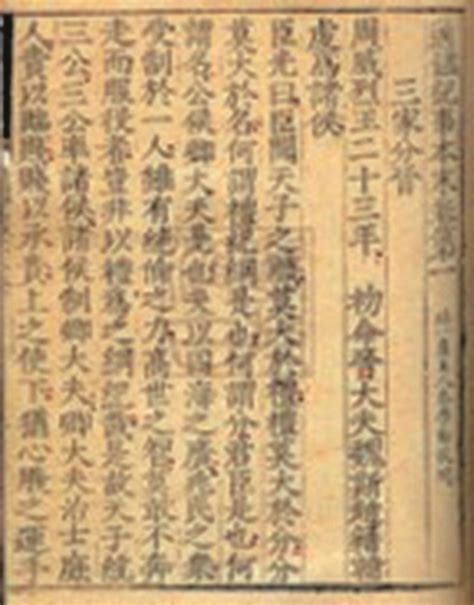 通鑑紀事本末卷第一
三家分晉
周威烈王二十三年 初命晉大夫魏斯趙籍韓
虔爲諸侯
臣光曰臣聞天子之職莫大於禮禮莫大於分分
莫大於名何謂禮紀綱是也何謂分君臣是也何
謂名公侯卿大夫是也夫以四海之廣兆民之衆
受制於一人雖有絶倫之力高世之智莫敢不奔
走而服役者豈非以禮爲之綱紀哉是故天子統
三公三公率諸侯諸侯制卿大夫卿大夫治士庶
人貴以臨賤賤以承貴上之使下猶心腹之運手